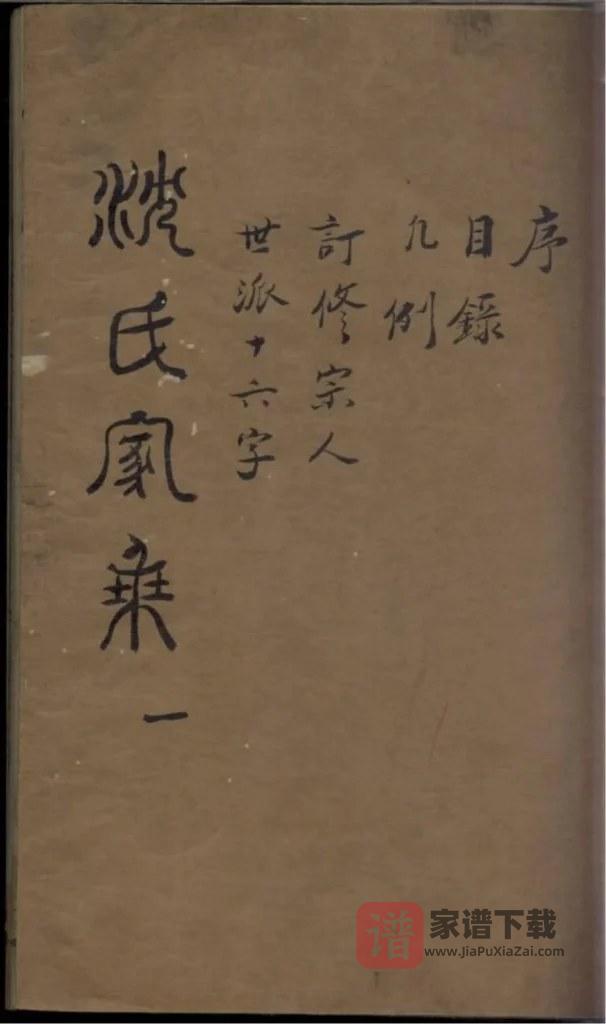 序
目錄
凡例
訂修宗人
世派十六字
沈氏家乘 一
谱
家谱下载
www.JiaPuXiaZai.com